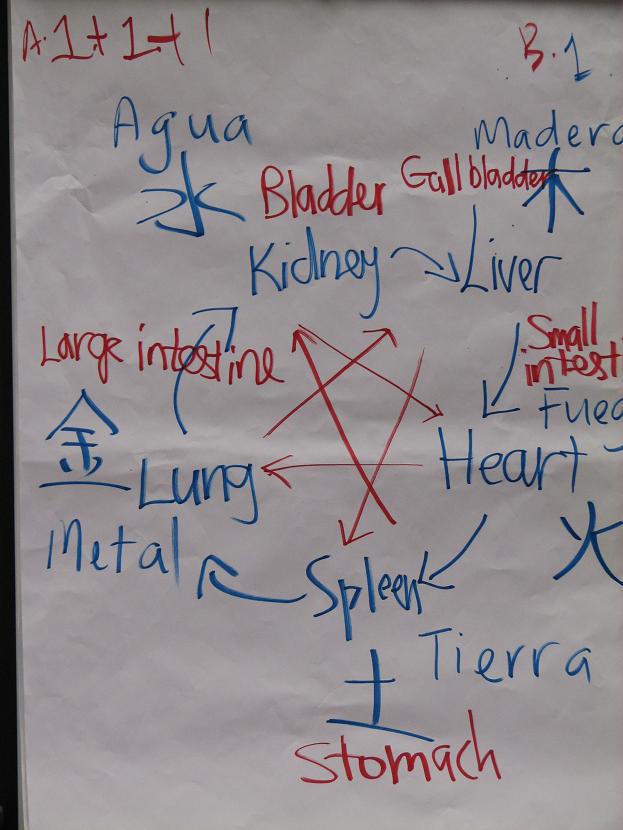 A. 1+1+1
B. 1
Agua
水
Madera
木
Bladder
Gallbladder
Kidney
Liver
Large intestine
Small
intest
Fueg
金
Lung
Heart
Metal
火
Spleen
Tierra
土
Stomach